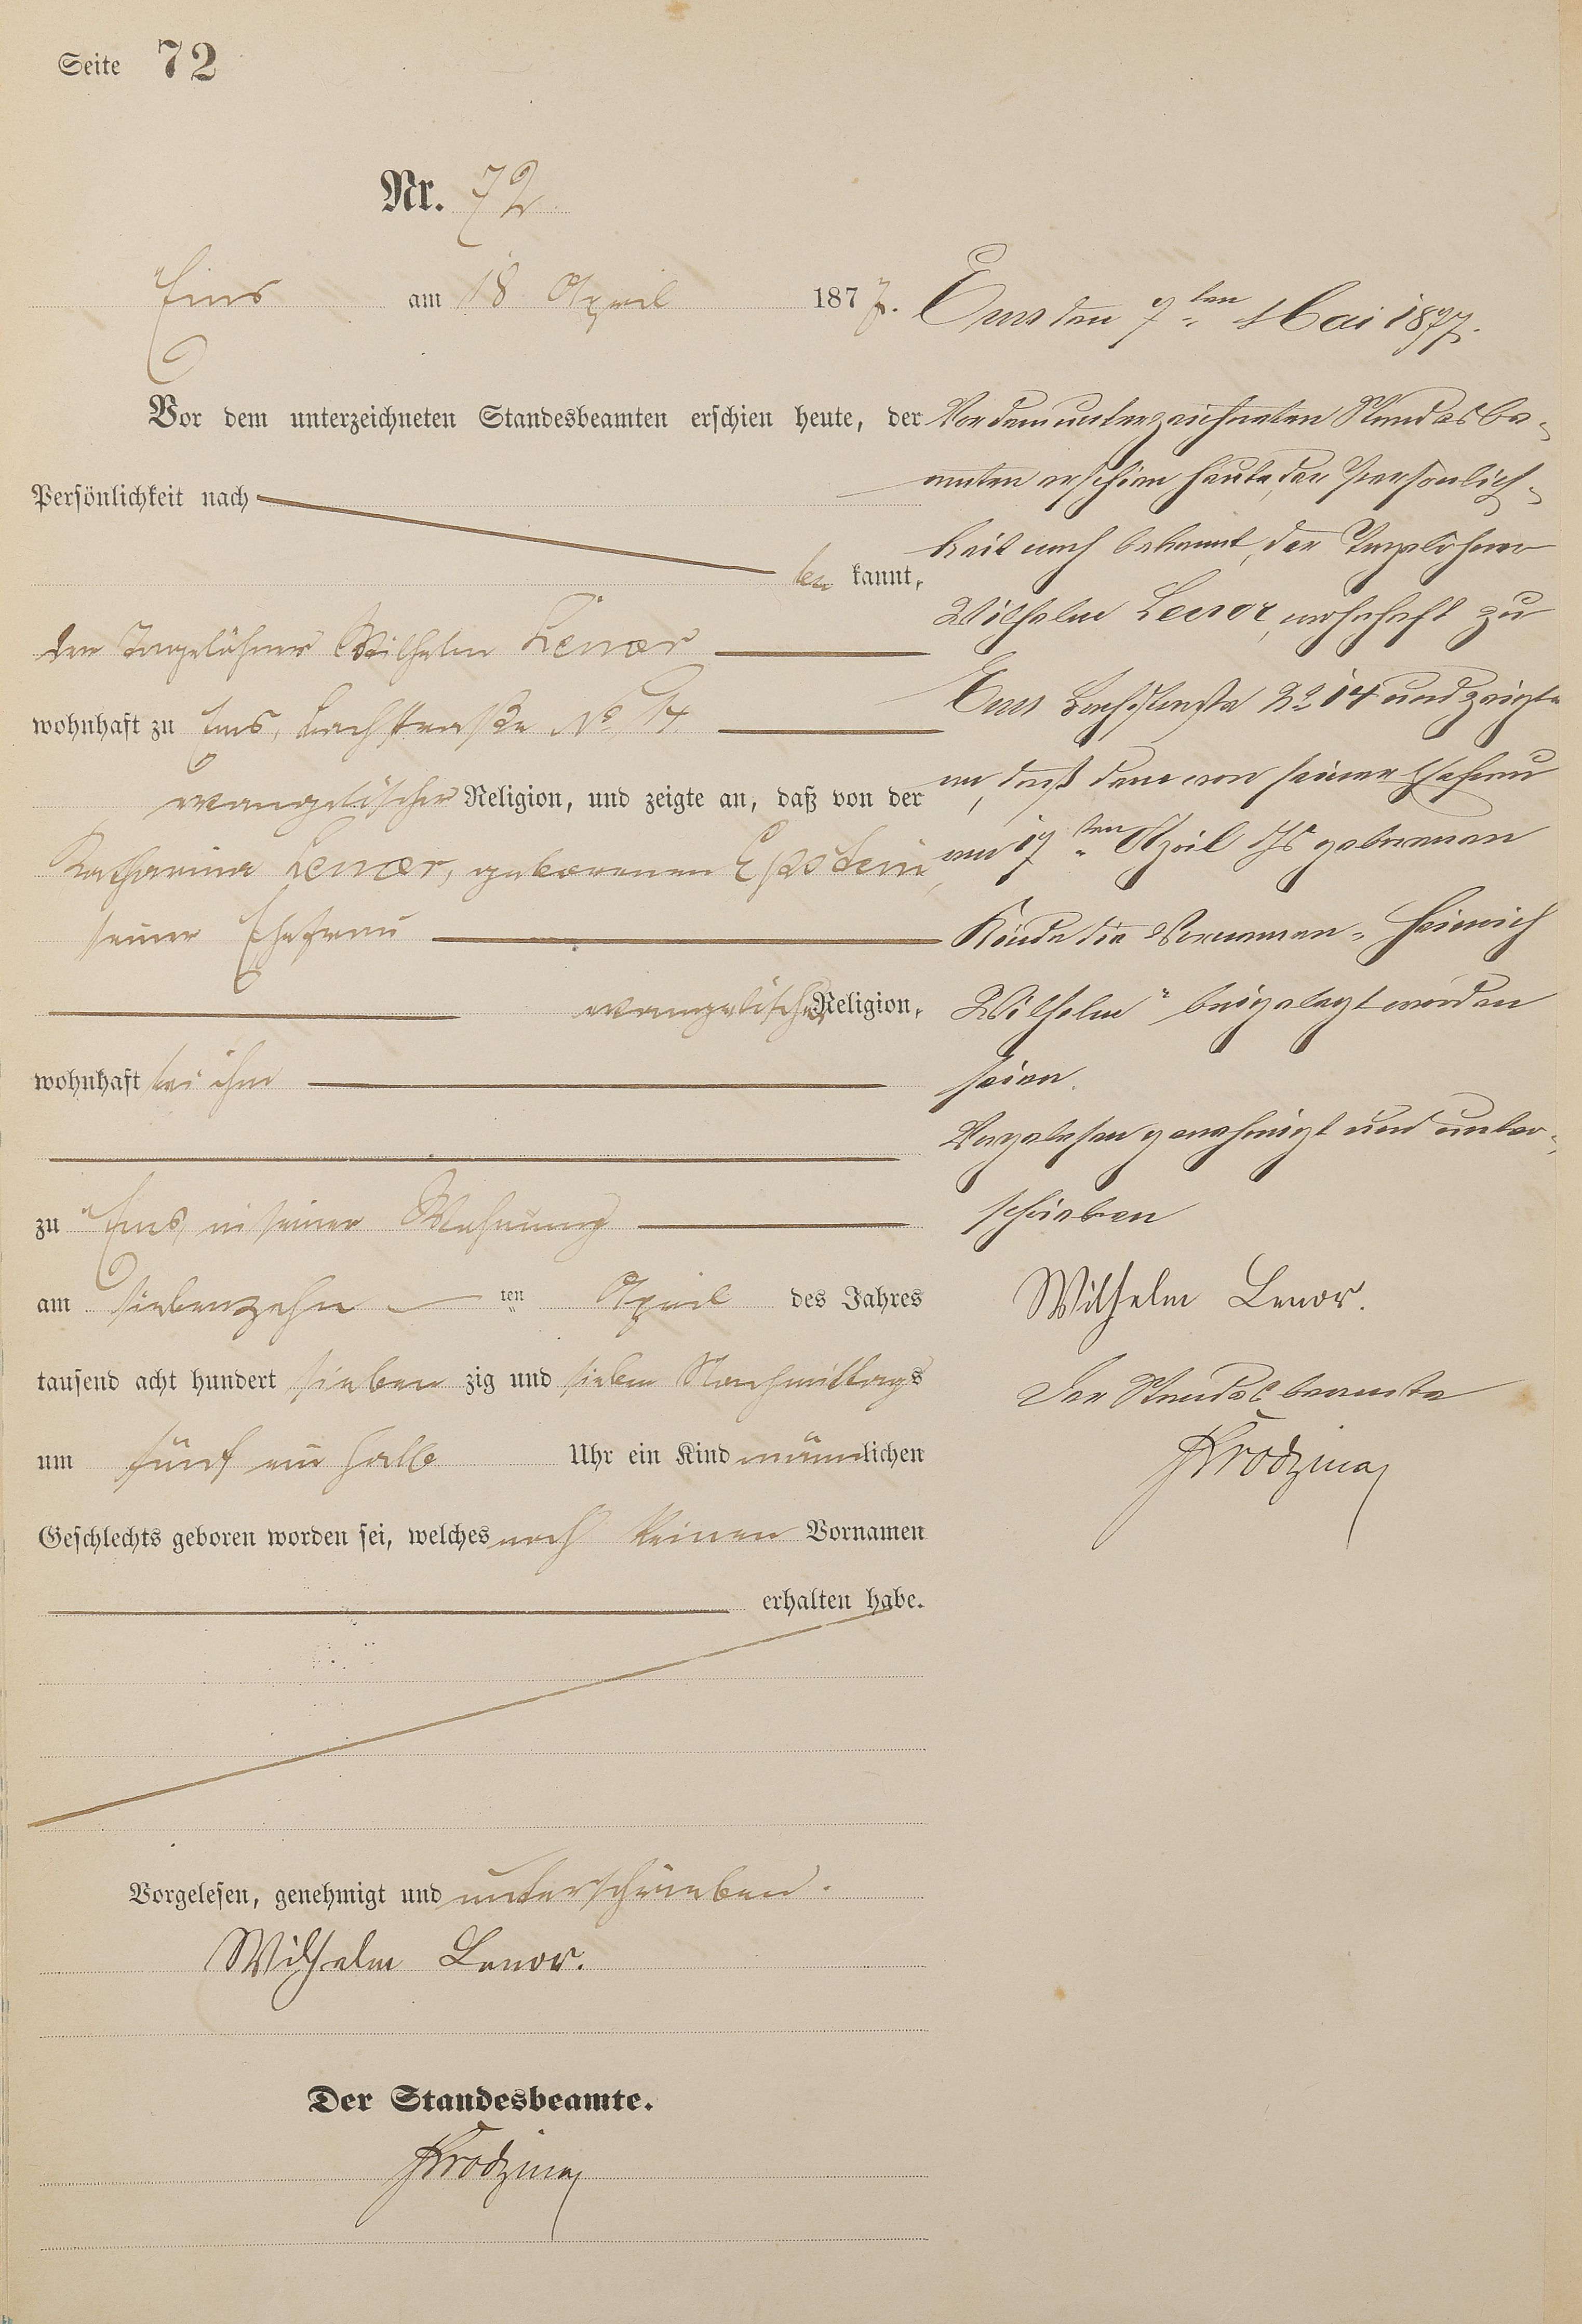 Seite 72
Nr. 72
Ems am 18 April 1877.
Vor dem unterzeichneten Standesbeamten erschien heute, der
Persönlichkeit nach
be kannt,
der Tagelöhner Wilhelm Lenor
wohnhaft zu Ems, Bachstraße No 14.
evangelischer Religion, und zeigte an, daß von der
Katharina Lenor, geborenen Epstein,
seiner Ehefrau
evangelischer Religion,
wohnhaft bei ihm
zu Ems, in seiner Wohnung
am siebenzehn ten April des Jahres
tausend acht hundert sieben zig und sieben Nachmittags
um fünf ein halb Uhr ein Kind männlichen
Geschlechts geboren worden sei, welches noch keinen Vornamen
erhalten habe.
Vorgelesen, genehmigt und unterschrieben.
Wilhelm Lenor.
Der Standesbeamte.
Ems den 7ten Mai 1877.
Vor dem unterzeichneten Standesbe-
amten erschien heute, der Persönlich-
keit nach bekannt, der Tagelöhner
Wilhelm Lenor, wohnhaft zu
Ems Bachstraße No 14 und zeigte
an, daß dem von seiner Ehefrau
am 17ten April Js geborenen
Kinde die Vornamen „Heinrich
Wilhelm“ beigelegt worden
seien.
Vorgelesen genehmigt und unter-
schrieben
Wilhelm Lenor.
Der Standesbeamte